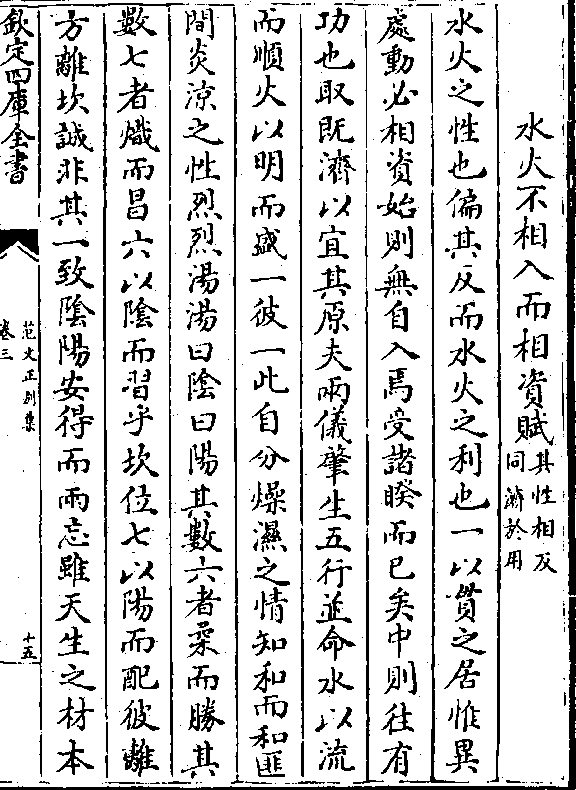 水火不相入而相資賦其性相反同濟於用
水火之性也偏其反而水火之利也一以貫之居惟異
處動必相資始則無自入焉受諸睽而已矣中則往有
功也取既濟以宜其原夫兩儀肇生五行並命水以流
而順火以明而盛一彼一此自分燥濕之情知和而和匪
間炎涼之性烈烈湯湯曰陰曰陽其數六者柔而勝其
數七者熾而昌六以陰而習乎坎位七以陽而配彼離
方離坎誠非其一致陰陽安得而兩忘雖天生之材本
欽定四庫全書
范文正別集
卷三
十五